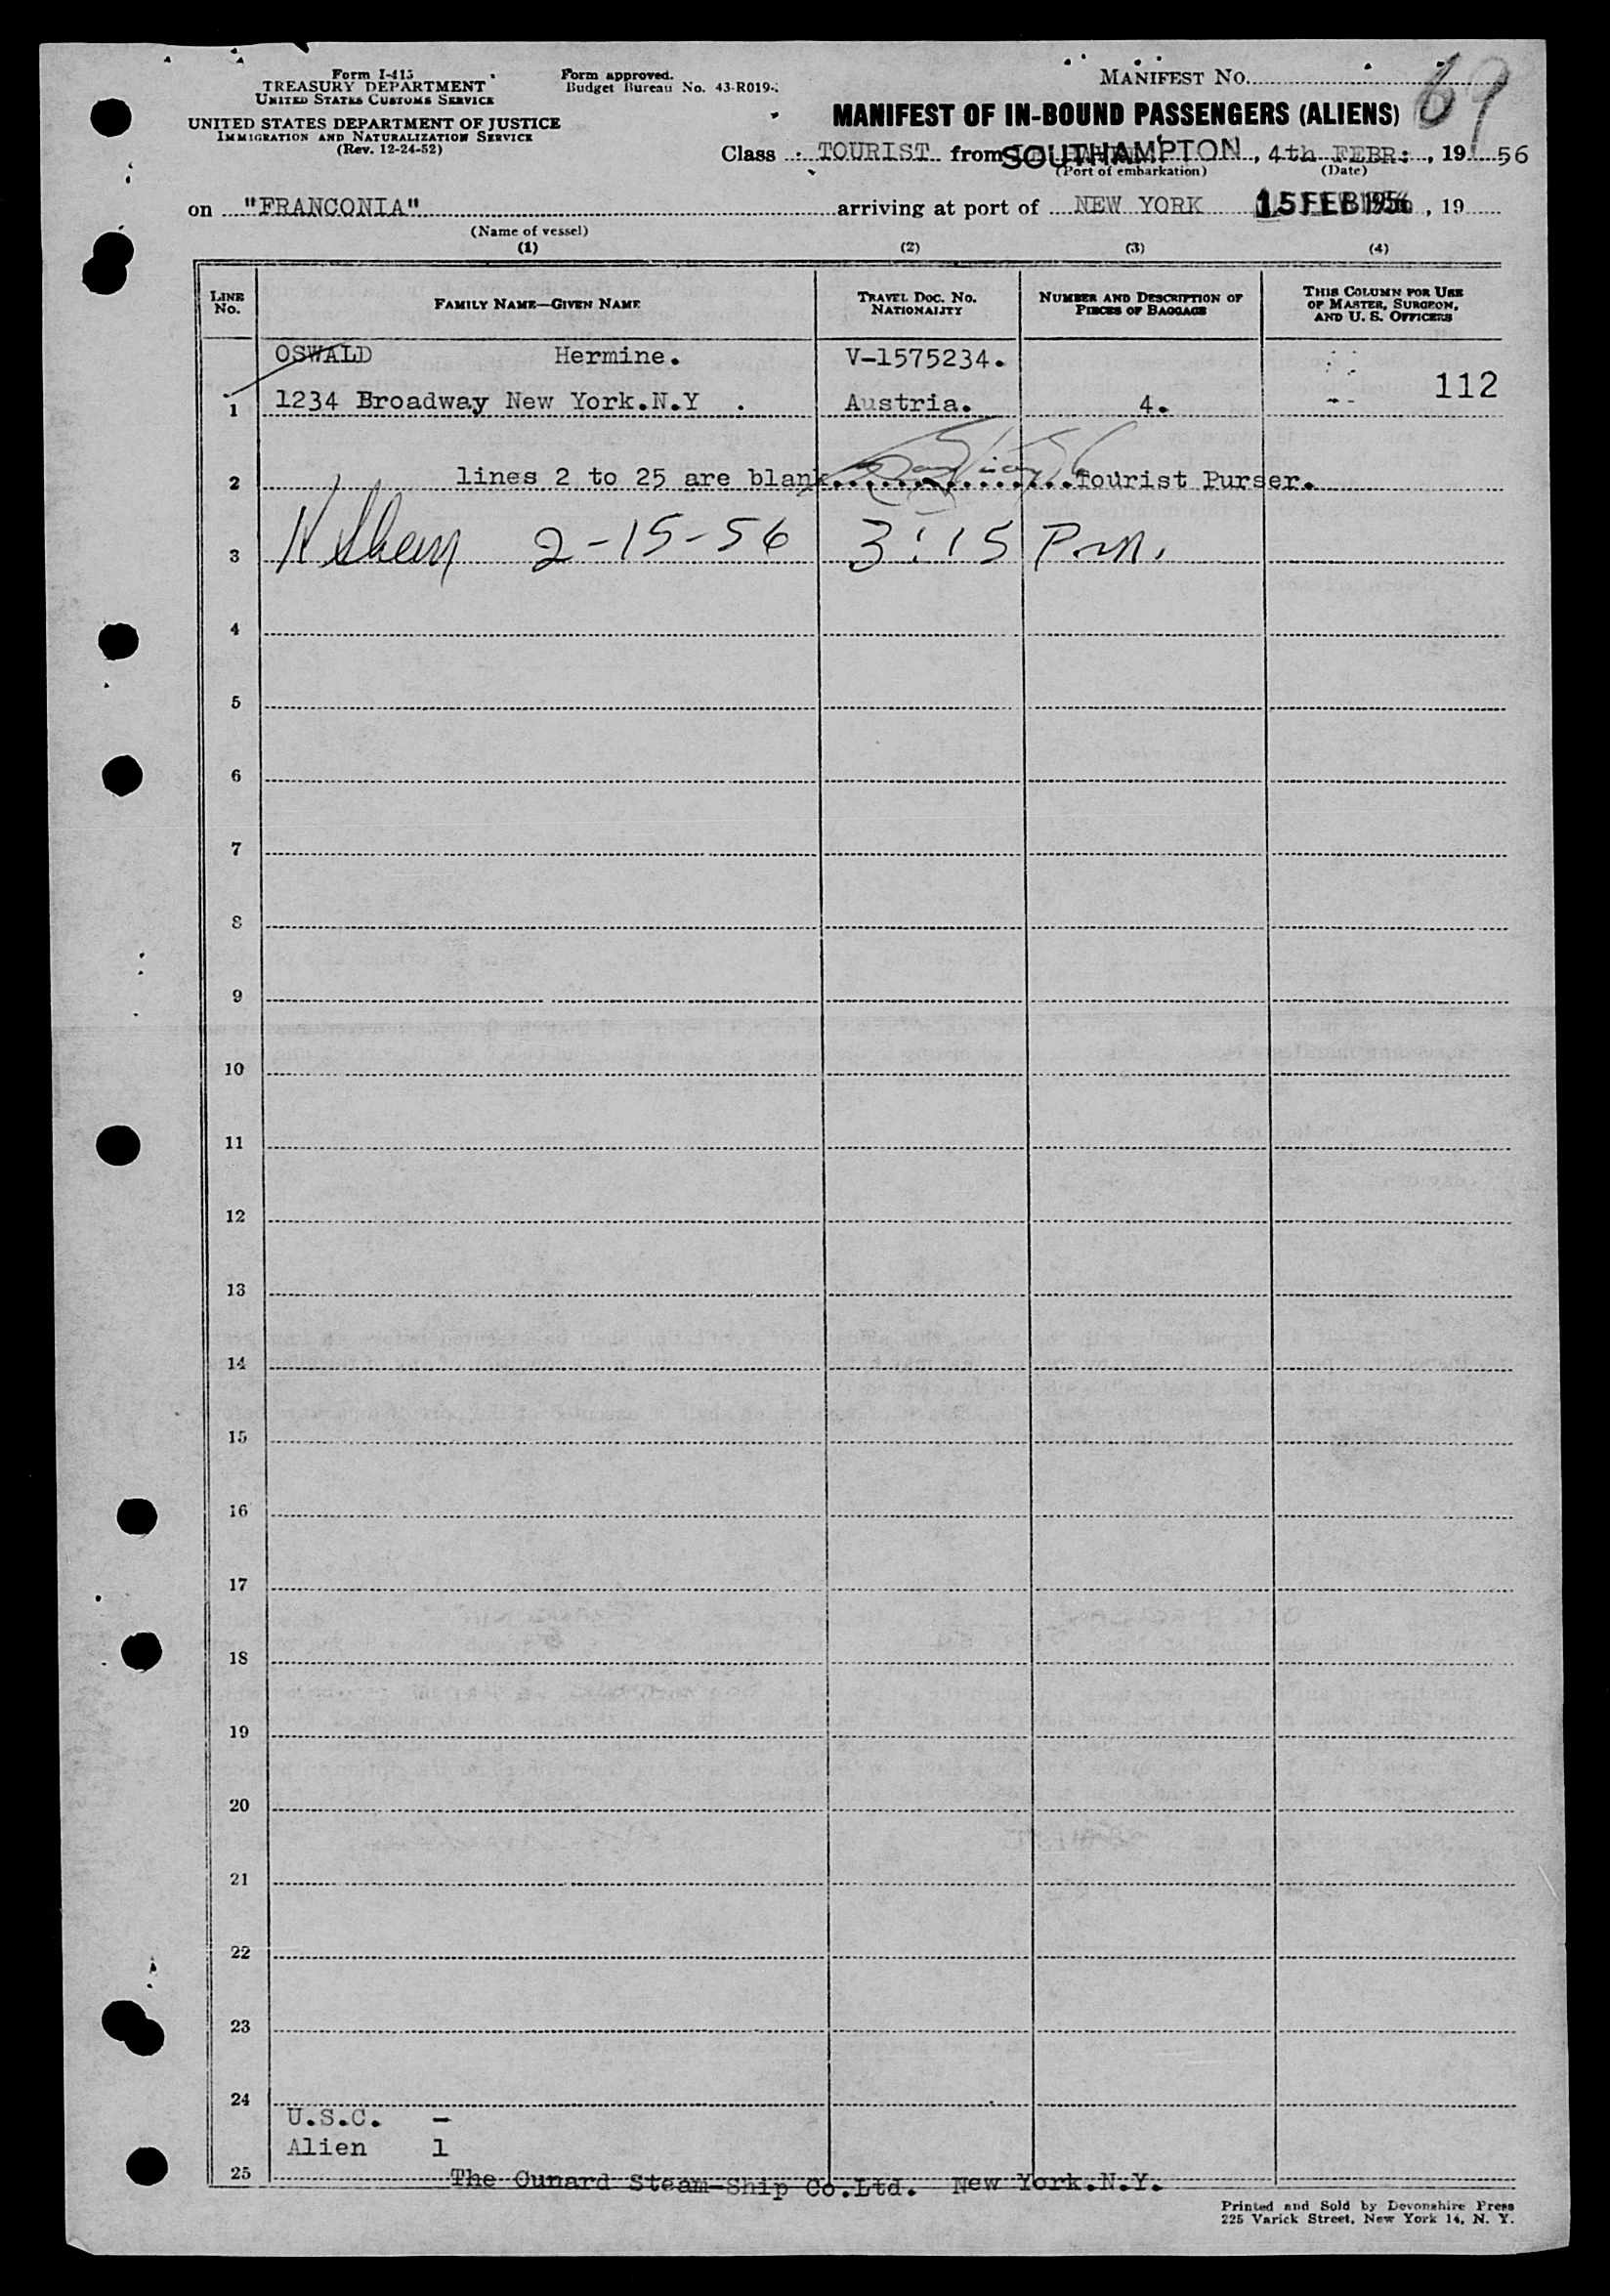 Form I-415
TREASURY DEPARTMENT
UNITED STATES CUSTOMS SERVICE
UNITED STATES DEPARTMENT OF JUSTICE
IMMIGRATION AND NATURALIZATION SERVICE
(Rev. 12-24-52)
Form approved.
Budget Bureau No. 43-R019-
MANIFEST NO. 69
MANIFEST OF IN-BOUND PASSENGERS (ALIENS)
Class TOURIST from SOUTHAMPTON, 4th FEBR:, 19 56
(Port of embarkation) (Date)
on "FRANCONIA" arriving at port of NEW YORK 15 FEB 1956, 19
(Name of vessel)
(1) (2) (3) (4)
LINE NO. FAMILY NAME—GIVEN NAME TRAVEL DOC. NO. NATIONALITY NUMBER AND DESCRIPTION OF PIECES OF BAGGAGE THIS COLUMN FOR USE OF MASTER, SURGEON, AND U. S. OFFICERS
OSWALD Hermine. V-1575234.
1 1234 Broadway New York.N.Y . Austria. 4. 112
2 lines 2 to 25 are blank..............Tourist Purser.
3 2-15-56 3:15 P.m.
4
5
6
7
8
9
10
11
12
13
14
15
16
17
18
19
20
21
22
23
24
U.S.C. -
Alien 1
25 The Cunard Steam-Ship Co.Ltd. New York.N.Y.
Printed and Sold by Devonshire Press
225 Varick Street, New York 14, N. Y.